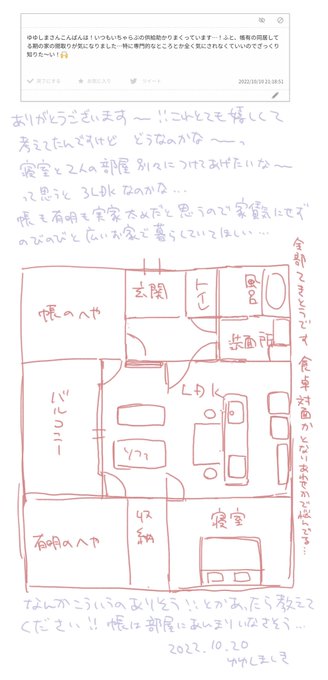 ゆゆしまさんこんばんは！いつもいちゃらぶの供給助かりまくっています…！ふと、帳有の同居して
る期の家の間取りが気になりました…特に専門的なところとか全く気にされなくていいのでざっくり
知りた〜い！🥺
完了にする
お気に入り
ツイート
2022/10/19 21:18:51
ありがとうございます〜!!これとても嬉しくて
考えてたんですけど どうなのかな〜っ
寝室と2人の部屋別々につけてあげたいな〜
って思うと 3LDKなのかな…
帳も有明も実家太めだと思うので家賃気にせず
のびのびと広いお家で暮らしていてほしい…
全部てきとうです 食卓対面かとなりあわせかで悩んでる…
帳のへや
玄関
トイレ
風呂
洗面所
バルコニー
LDK
ソファ
有明のへや
収納
寝室
なんかこういうのありそう!!とかあったら教えて
ください!! 帳は部屋にあんまりいなさそう…
2022.10.20
ゆゆしましき